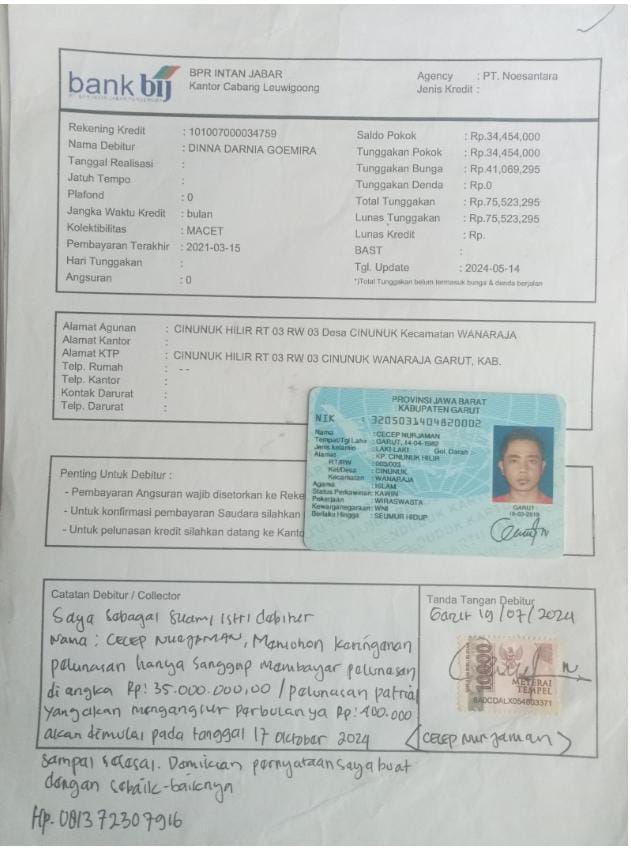 bank bij
BPR INTAN JABAR
Kantor Cabang Leuwigoong
Agency : PT. Noesantara
Jenis Kredit :
Rekening Kredit : 101007000034759
Nama Debitur : DINNA DARNIA GOEMIRA
Tanggal Realisasi :
Jatuh Tempo :
Plafond : 0
Jangka Waktu Kredit : bulan
Kolektibilitas : MACET
Pembayaran Terakhir : 2021-03-15
Hari Tunggakan :
Angsuran : 0
Saldo Pokok : Rp.34,454,000
Tunggakan Pokok : Rp.34,454,000
Tunggakan Bunga : Rp.41,069,295
Tunggakan Denda : Rp.0
Total Tunggakan : Rp.75,523,295
Lunas Tunggakan : Rp.75,523,295
Lunas Kredit : Rp.
BAST :
Tgl. Update : 2024-05-14
*)Total Tunggakan belum termasuk bunga & denda berjalan
Alamat Agunan : CINUNUK HILIR RT 03 RW 03 Desa CINUNUK Kecamatan WANARAJA
Alamat Kantor :
Alamat KTP : CINUNUK HILIR RT 03 RW 03 CINUNUK WANARAJA GARUT, KAB.
Telp. Rumah : --
Telp. Kantor :
Kontak Darurat :
Telp. Darurat :
PROVINSI JAWA BARAT
KABUPATEN GARUT
NIK : 3205031404820002
Nama : CECEP NURJAMAN
Tempat/Tgl Lahir : GARUT, 14-04-1982
Jenis kelamin : LAKI-LAKI Gol. Darah :
Alamat : KP. CINUNUK HILIR
RT/RW : 003/003
Kel/Desa : CINUNUK
Kecamatan : WANARAJA
Agama : ISLAM
Status Perkawinan: KAWIN
Pekerjaan : WIRASWASTA
Kewarganegaraan: WNI
Berlaku Hingga : SEUMUR HIDUP
GARUT
Penting Untuk Debitur :
- Pembayaran Angsuran wajib disetorkan ke Reke
- Untuk konfirmasi pembayaran Saudara silahkan
- Untuk pelunasan kredit silahkan datang ke Kanto
Catatan Debitur / Collector
Saya sebagai Suami istri debitur
Nama : CECEP NURJAMAN, Memohon Keringanan
pelunasan hanya Sanggup Membayar pelunasan
di angka Rp: 35.000.000,00 / pelunasan patrial
yang akan mengangsur perbulanya Rp: 400.000
akan dimulai pada tanggal 17 Oktober 2024
sampai selesai. Demikian pernyataan saya buat
dengan sebaik-baiknya
Hp. 081372307916
Tanda Tangan Debitur
Garut 19/07/2024
10000
METERAI
TEMPEL
8ADCDALX054803371
(CECEP NURJAMAN)